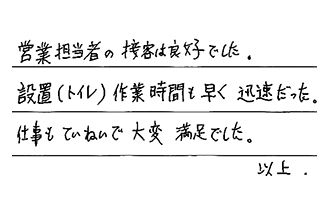 営業担当者の接客は良好でした。
設置(トイレ)作業時間も早く迅速だった。
仕事もていねいで大変満足でした。
以上.